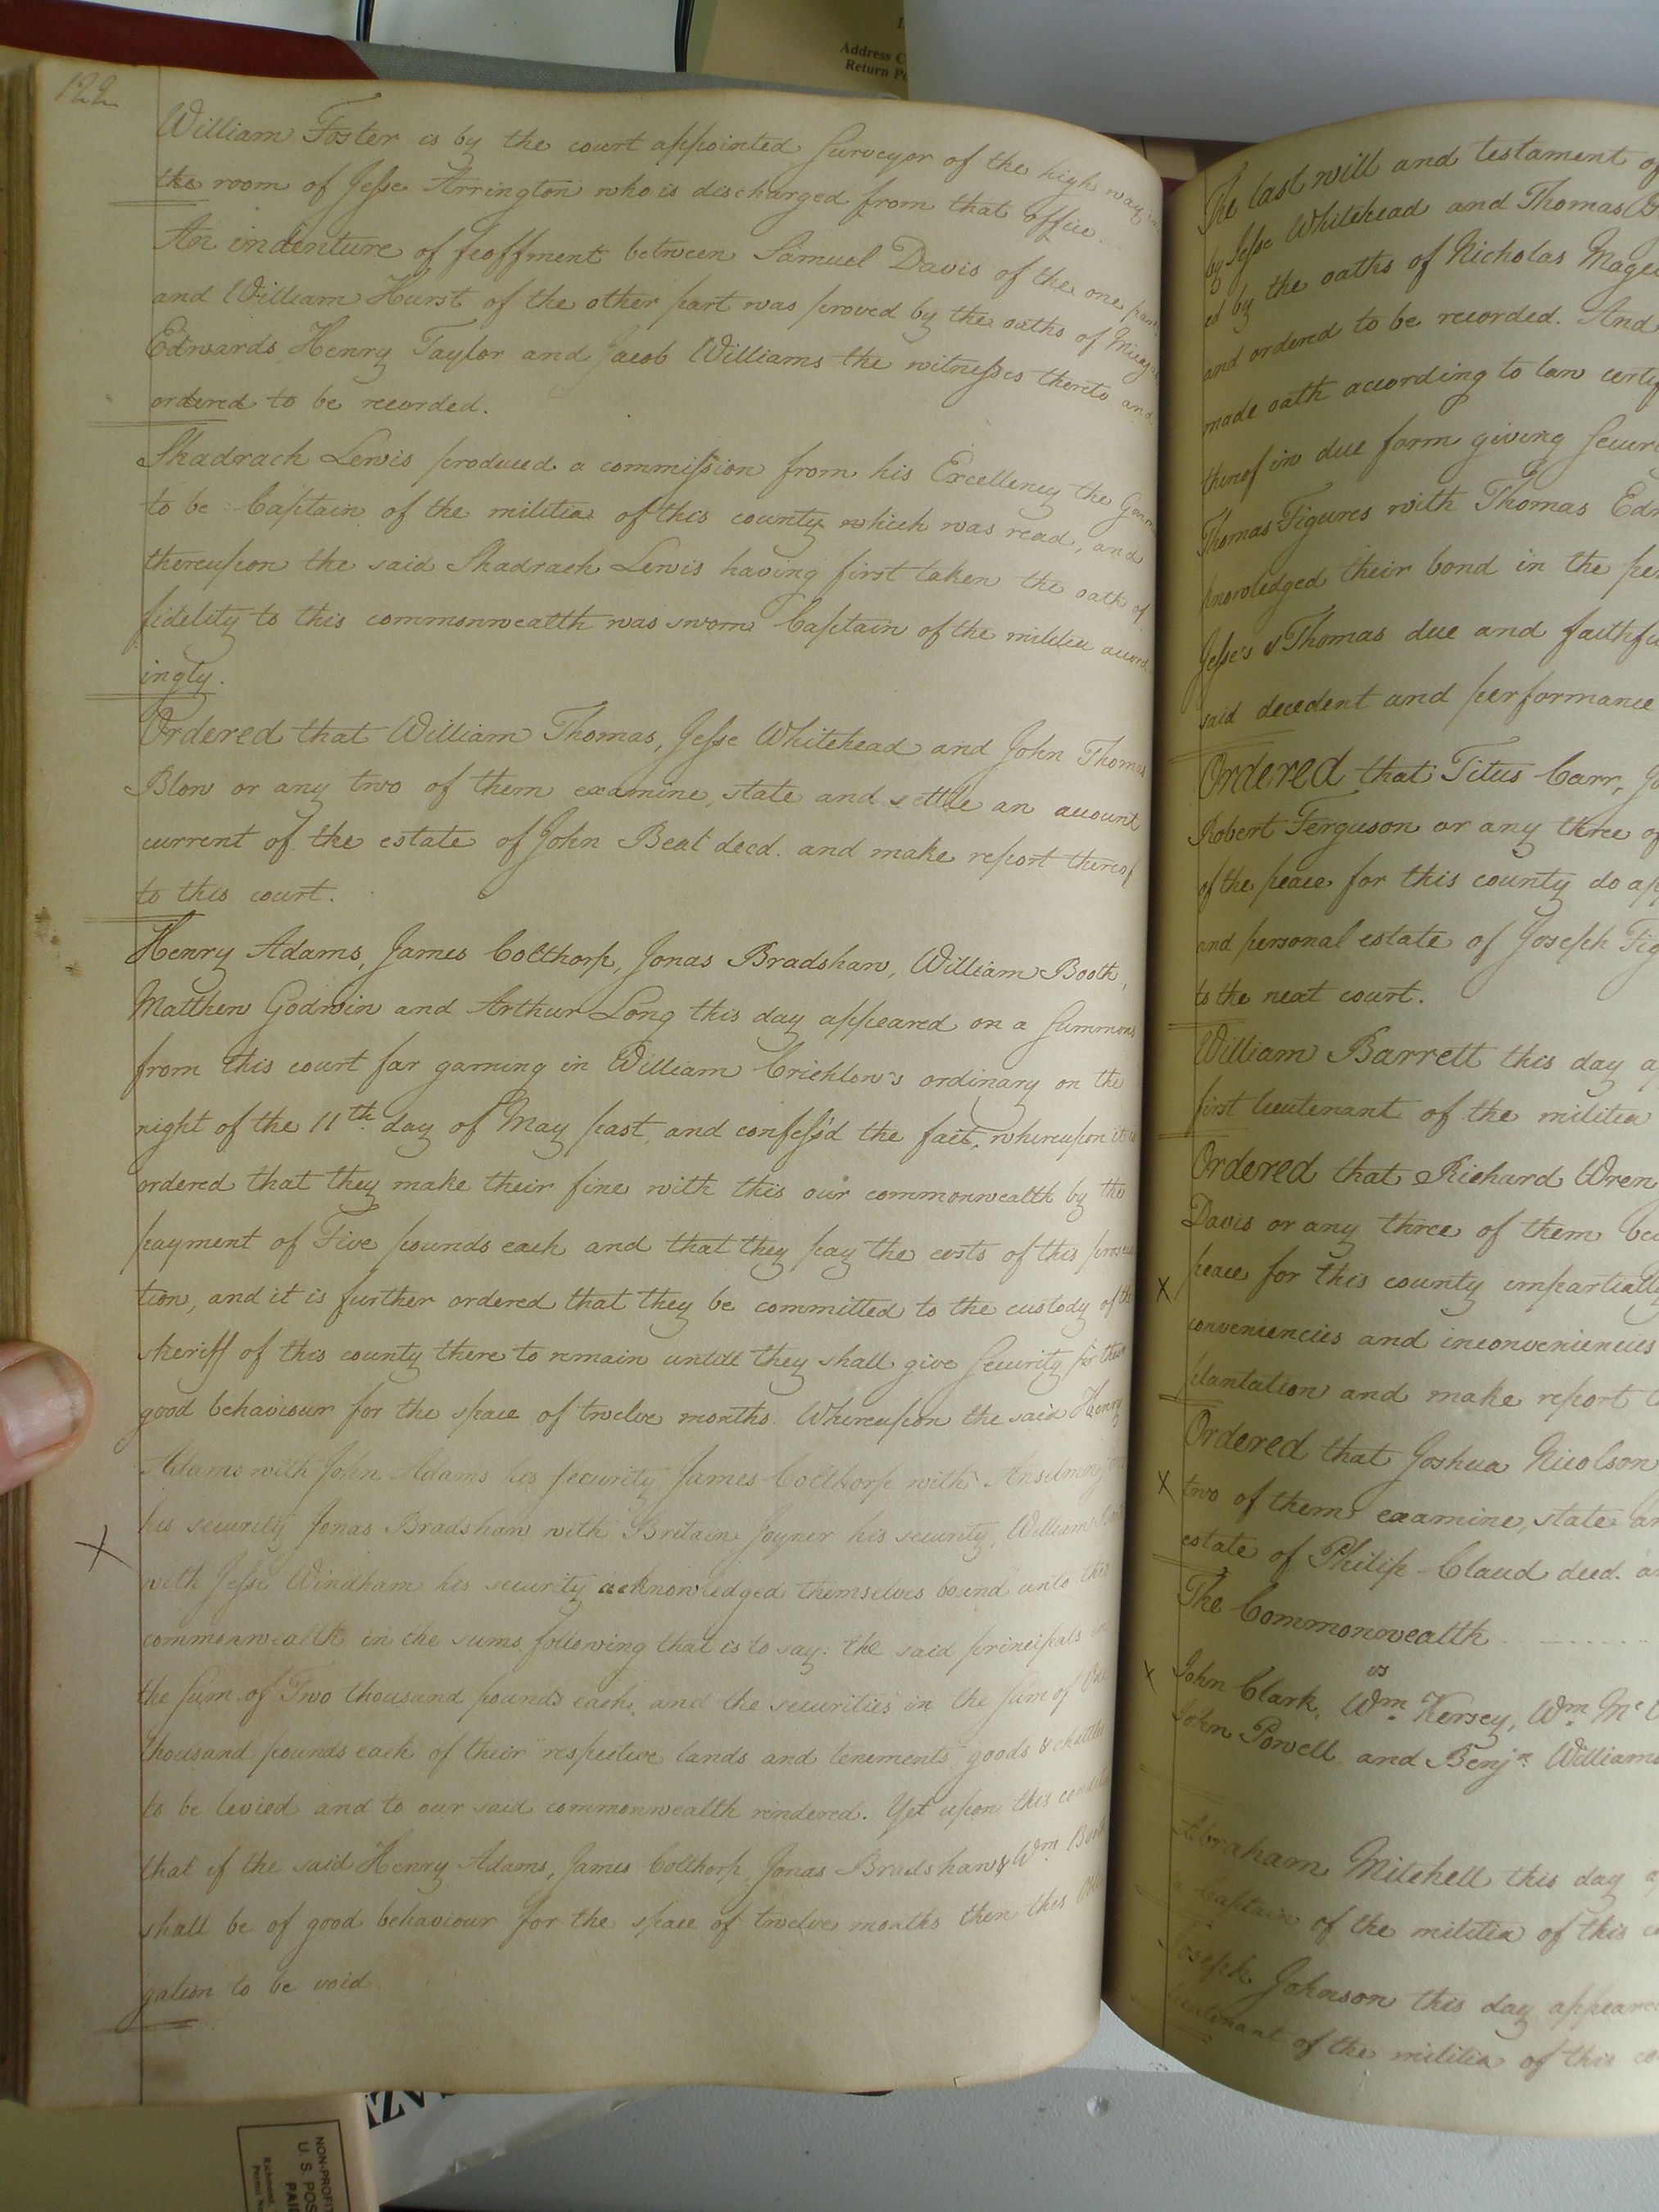 122
William Foster is by the court appointed Surveyor of the high way in
the room of Jesse Arrington who is discharged from that office.
An indenture of feoffment between Samuel Davis of the one part
and William Hurst of the other part was proved by the oaths of
Edwards, Henry Taylor and Jacob Williams the witnesses thereto and
ordered to be recorded.
Shadrach Lewis produced a commission from his Excellency the
to be Captain of the militia of this county which was read, and
thereupon the said Shadrach Lewis having first taken the oath of
fidelity to this commonwealth was sworn Captain of the militia accord
ingly.
Ordered that William Thomas, Jesse Whitehead and John Thomas
Blow or any two of them examine, state and settle an account
current of the estate of John Beal decd. and make report thereof
to this court.
Henry Adams, James Colthorp, Jonas Bradshaw, William Booth,
Matthew Godwin and Arthur Long this day appeared on a Summons
from this court for gaming in William Crichlow's ordinary on the
night of the 11th day of May past, and confess'd the fact, whereupon it is
ordered that they make their fine with this our commonwealth by the
payment of Five pounds each and that they pay the costs of this prosecu
tion, and it is further ordered that they be committed to the custody of the
sheriff of this county there to remain untill they shall give Security for their
good behaviour for the space of twelve months. Whereupon the said Henry
Adams with John Adams his security James Colthorp with Anselm
his security Jonas Bradshaw with Britain Joyner his security, William
X
with Jesse Windham his security acknowledged themselves bound unto this
commonwealth in the sums following that is to say: the said principals in
the sum of Two thousand pounds each, and the securities in the sum of One
thousand pounds each of their respective lands and tenements goods & chattles
to be levied and to our said commonwealth rendered. Yet upon this condition
that if the said Henry Adams, James Colthorp, Jonas Bradshaw & Wm. Booth
shall be of good behaviour for the space of twelve months then this Obli
gation to be void
The last will and testament of
by Jesse Whitehead and Thomas
ed by the oaths of Nicholas
and ordered to be recorded. And
made oath according to law
thereof in due form giving
Thomas Figures with Thomas
knowledged their bond in the
Jesse's & Thomas due and
said decedent and performance
Ordered that Titus Carr,
Robert Ferguson or any three of
of the peace for this county do
and personal estate of Joseph
to the next court.
William Barrett this day
first lieutenant of the militia
Ordered that Richard Wren
Davis or any three of them
X peace for this county impartially
conveniencies and inconveniencies
plantation and make report
Ordered that Joshua Nicolson
X two of them examine, state
estate of Philip Claud decd.
The Commonwealth
vs
X John Clark, Wm. Kersey, Wm.
John Powell and Benjn. Williams
Abraham Mitchell this day
a Captain of the militia of this
Joseph Johnson this day
lieutenant of the militia of this
Address
Return
NON-PROFIT
U. S. POS
PAI
Richmond,
Permit No